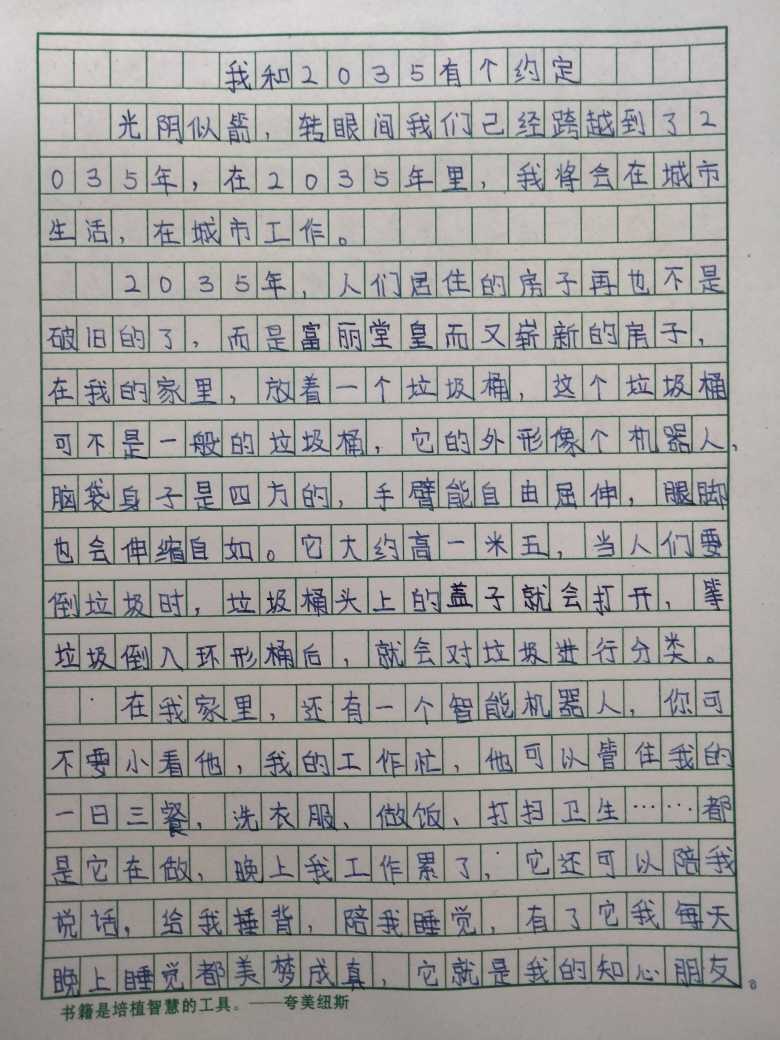 我和2035有个约定
光阴似箭,转眼间我们已经跨越到了2
035年,在2035年里,我将会在城市
生活,在城市工作。
2035年,人们居住的房子再也不是
破旧的了,而是富丽堂皇而又崭新的房子,
在我的家里,放着一个垃圾桶,这个垃圾桶
可不是一般的垃圾桶,它的外形像个机器人,
脑袋身子是四方的,手臂能自由屈伸,腿脚
也会伸缩自如。它大约高一米五,当人们要
倒垃圾时,垃圾桶头上的盖子就会打开,等
垃圾倒入环形桶后,就会对垃圾进行分类。
在我家里,还有一个智能机器人,你可
不要小看他,我的工作忙,他可以管住我的
一日三餐,洗衣服、做饭、打扫卫生……都
是它在做,晚上我工作累了,它还可以陪我
说话,给我捶背,陪我睡觉,有了它我每天
晚上睡觉都美梦成真,它就是我的知心朋友
书籍是培植智慧的工具。——夸美纽斯
8